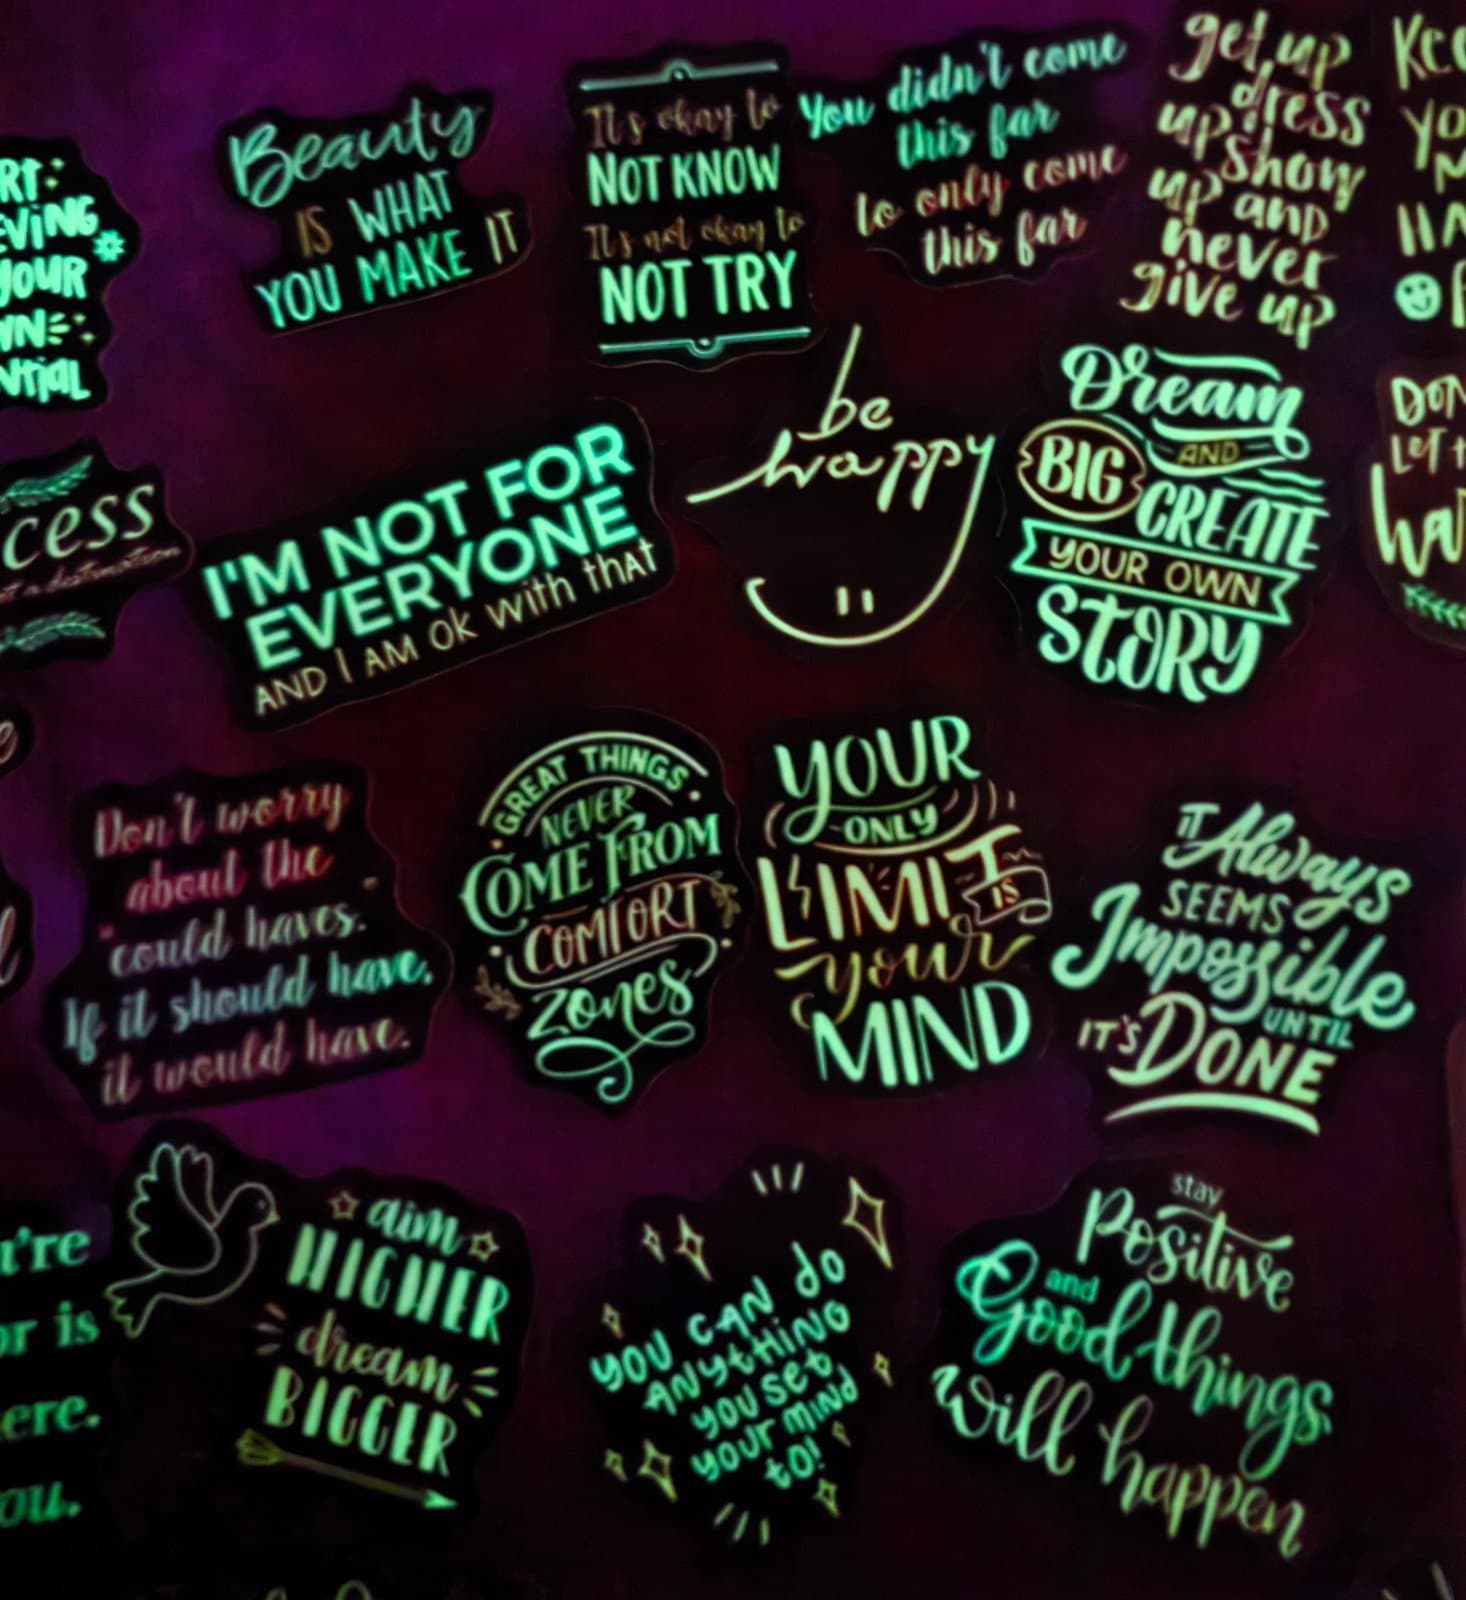 Beauty
IS WHAT
YOU MAKE IT
It's okay to
NOT KNOW
It's not okay to
NOT TRY
You didn't come
this far
to only come
this far
get up
dress
up show
up and
never
give up
YOUR
I'M NOT FOR
EVERYONE
AND I AM OK with that
be
happy
Dream
AND
BIG
CREATE
YOUR OWN
STORY
Don't worry
about the
could haves.
If it should have,
it would have.
GREAT THINGS
NEVER
COME FROM
COMFORT
ZONES
YOUR
ONLY
LIMIT
IS
your
MIND
IT Always
SEEMS
Impossible
UNTIL
IT'S DONE
aim
HIGHER
dream
BIGGER
YOU CAN do
ANYthING
you set
your MIND
to!
stay
Positive
and
Good things
will happen
is